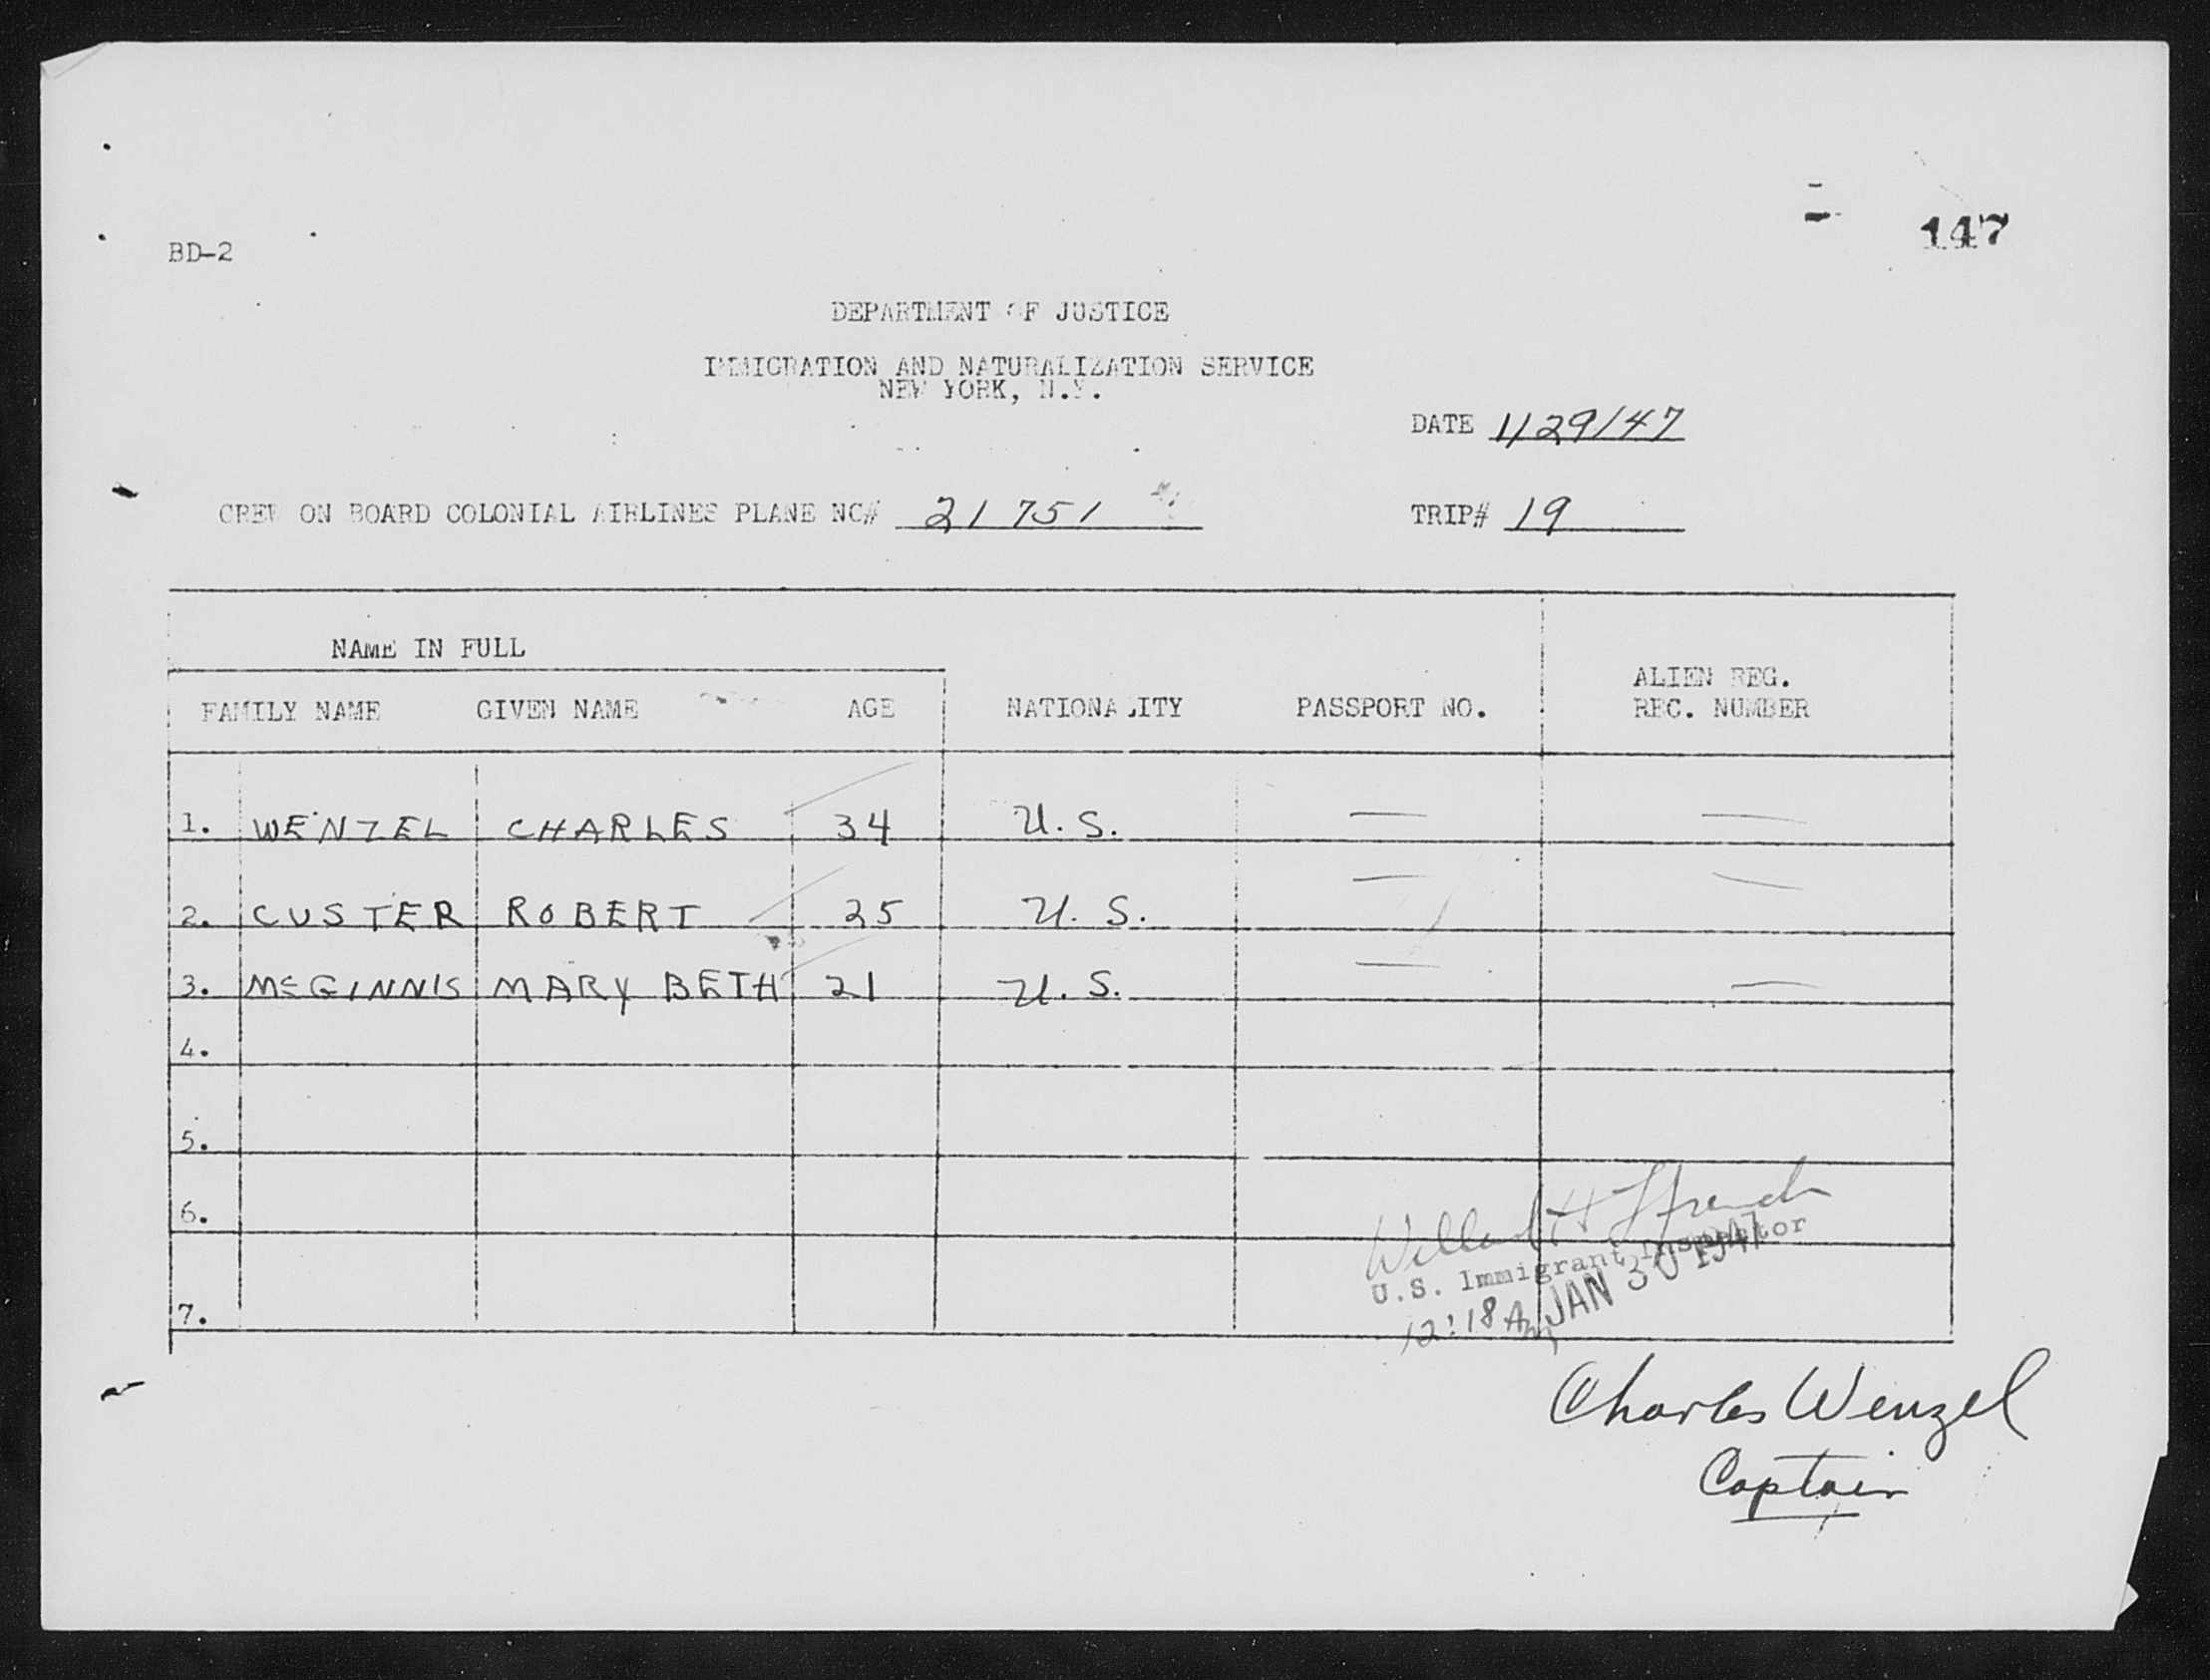 147
BD-2
DEPARTMENT OF JUSTICE
IMMIGRATION AND NATURALIZATION SERVICE
NEW YORK, N.Y.
DATE 1/29/47
CREW ON BOARD COLONIAL AIRLINES PLANE NC# 21751 TRIP# 19
NAME IN FULL
FAMILY NAME GIVEN NAME AGE NATIONALITY PASSPORT NO. ALIEN REG. REC. NUMBER
1. WENZEL CHARLES 34 U.S. — —
2. CUSTER ROBERT 25 U.S. — —
3. McGINNIS MARY BETH 21 U.S. — —
4.
5.
6.
7.
Willard H
U.S. Immigrant Inspector
12:18 Am JAN 30 1947
Charles Wenzel
Captain